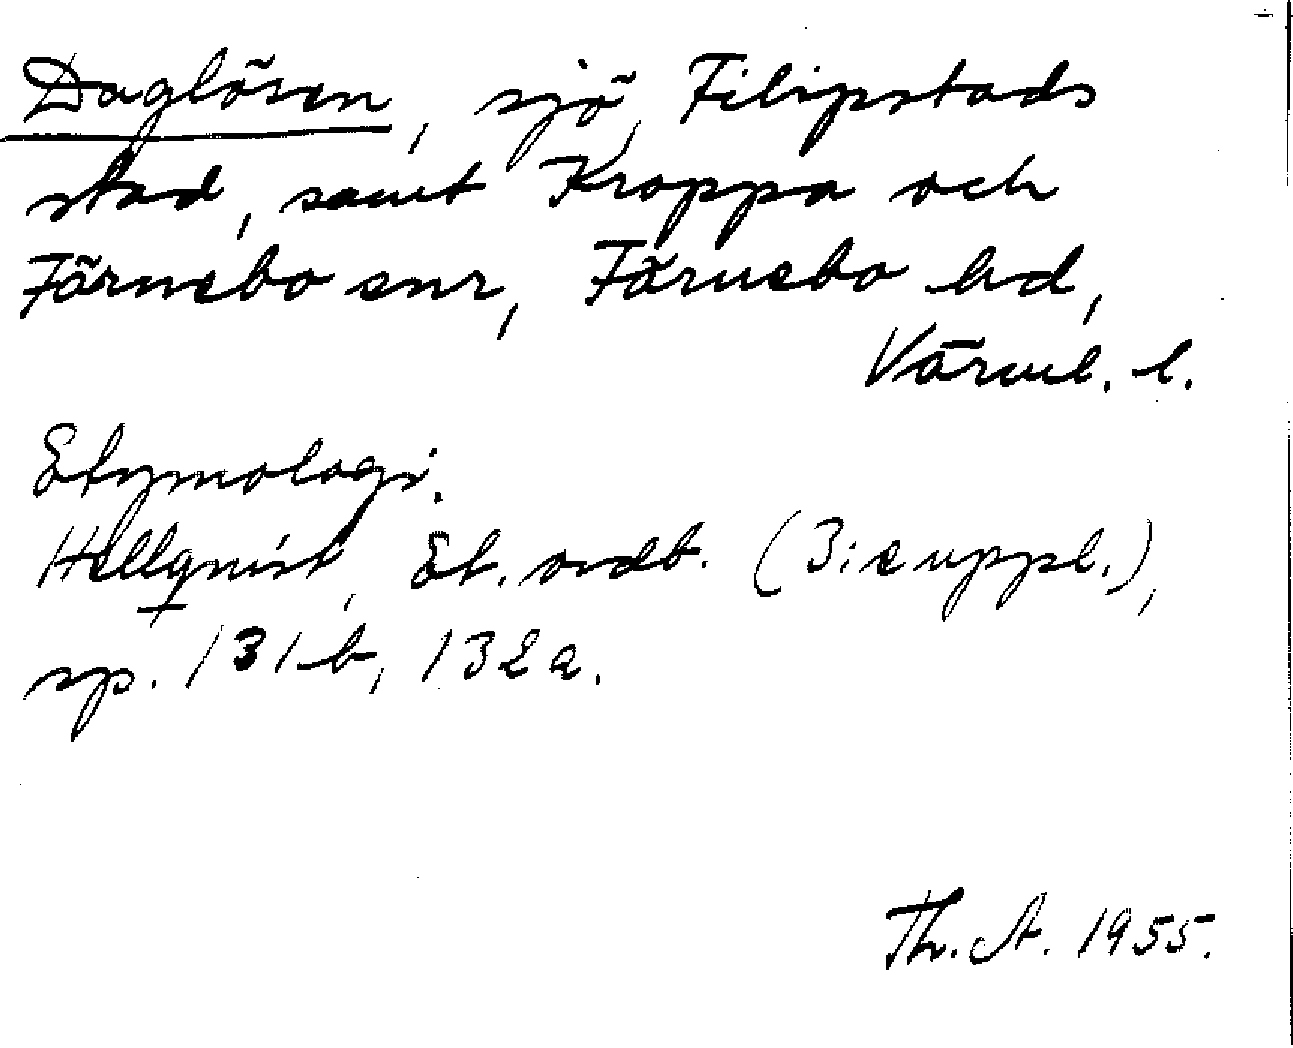 Daglösen, sjö, Filipstads
stad, samt Kroppa och
Färnebo snr, Färnebo hd,
Värml. l.
Etymologi.
Hellquist, Et. ordb. (3:e uppl.),
sp. 131 b, 132 a.
Th. A. 1955.